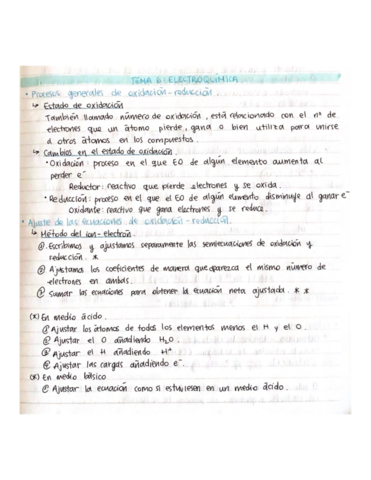 TEMA 6: ELECTROQUÍMICA
• Procesos generales de oxidación-reducción.
↳ Estado de oxidación
También llamado número de oxidación, está relacionado con el nº de
electrones que un átomo pierde, gana o bien utiliza para unirse
a otros átomos en los compuestos.
↳ Cambios en el estado de oxidación
• Oxidación: proceso en el que EO de algún elemento aumenta al
perder e⁻
Reductor: reactivo que pierde electrones y se oxida.
• Reducción: proceso en el que el EO de algún elemento disminuye al ganar e⁻
Oxidante: reactivo que gana electrones y se reduce.
• Ajuste de las ecuaciones de oxidación-reducción.
↳ Método del ion-electrón.
① Escribimos y ajustamos separadamente las semiecuaciones de oxidación y
reducción. *
② Ajustamos los coeficientes de manera que aparezca el mismo número de
electrones en ambas.
③ Sumar las ecuaciones para obtener la ecuación neta ajustada. * *
(*) En medio ácido.
① Ajustar los átomos de todos los elementos menos el H y el O.
② Ajustar el O añadiendo H₂O.
③ Ajustar el H añadiendo H⁺
④ Ajustar las cargas añadiendo e⁻.
(*) En medio básico
① Ajustar la ecuación como si estuviesen en un medio ácido.